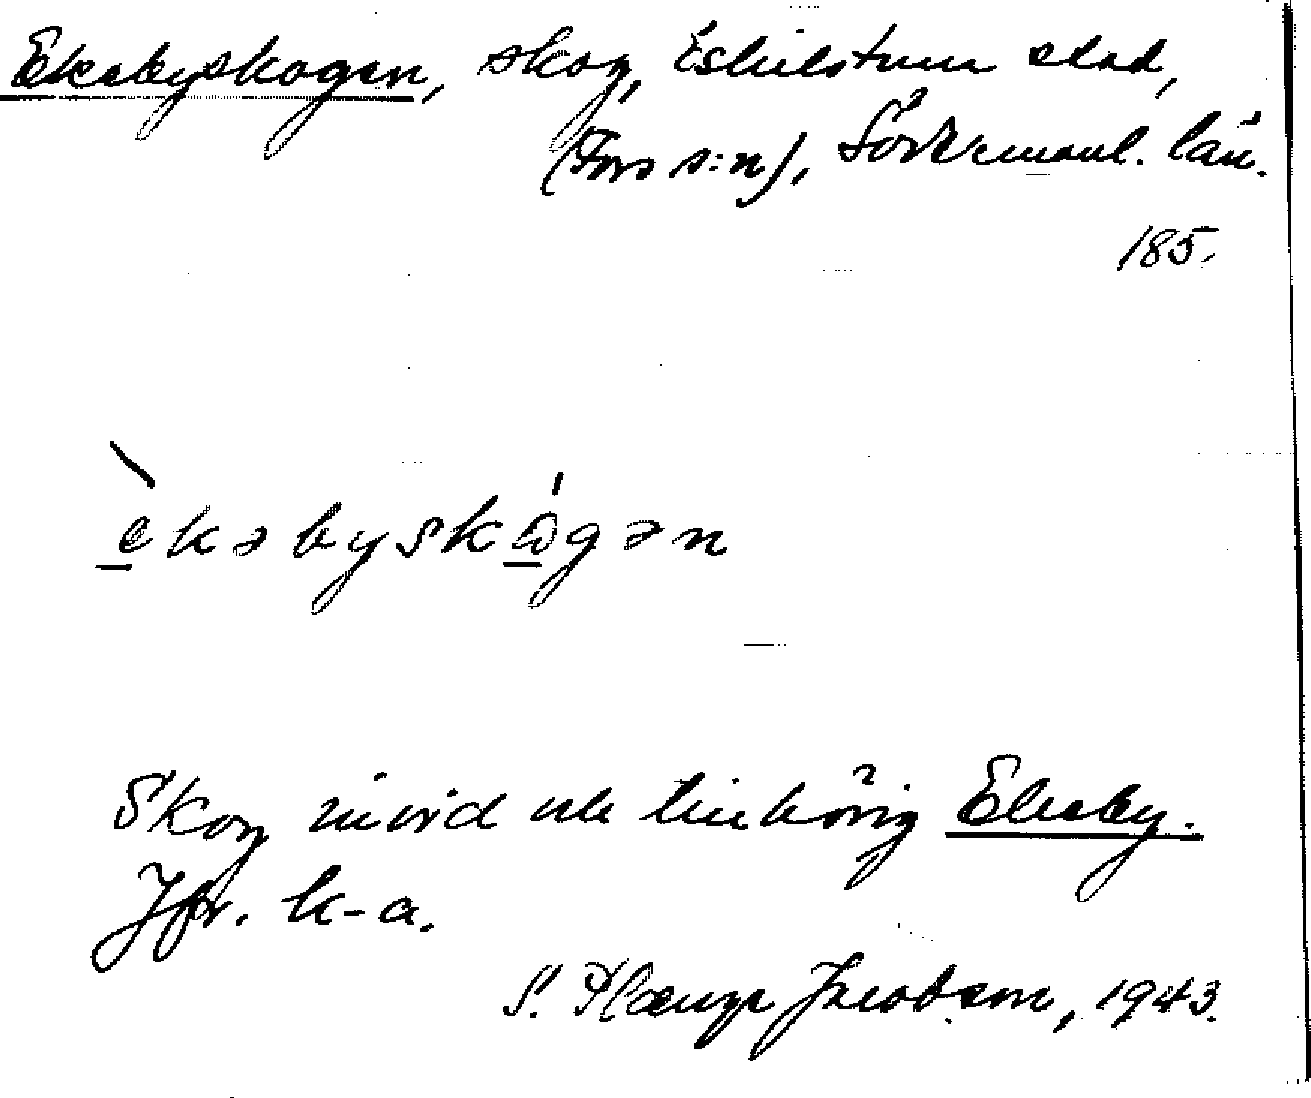 Ekebyskogen, skog, Eskilstuna stad,
(Fors s:n), Södermanl. län.
185.
èkəbyskógən
Skog invid och tillhörig Ekeby.
Jfr. k-a.
S. Plænge Jacobson, 1943.